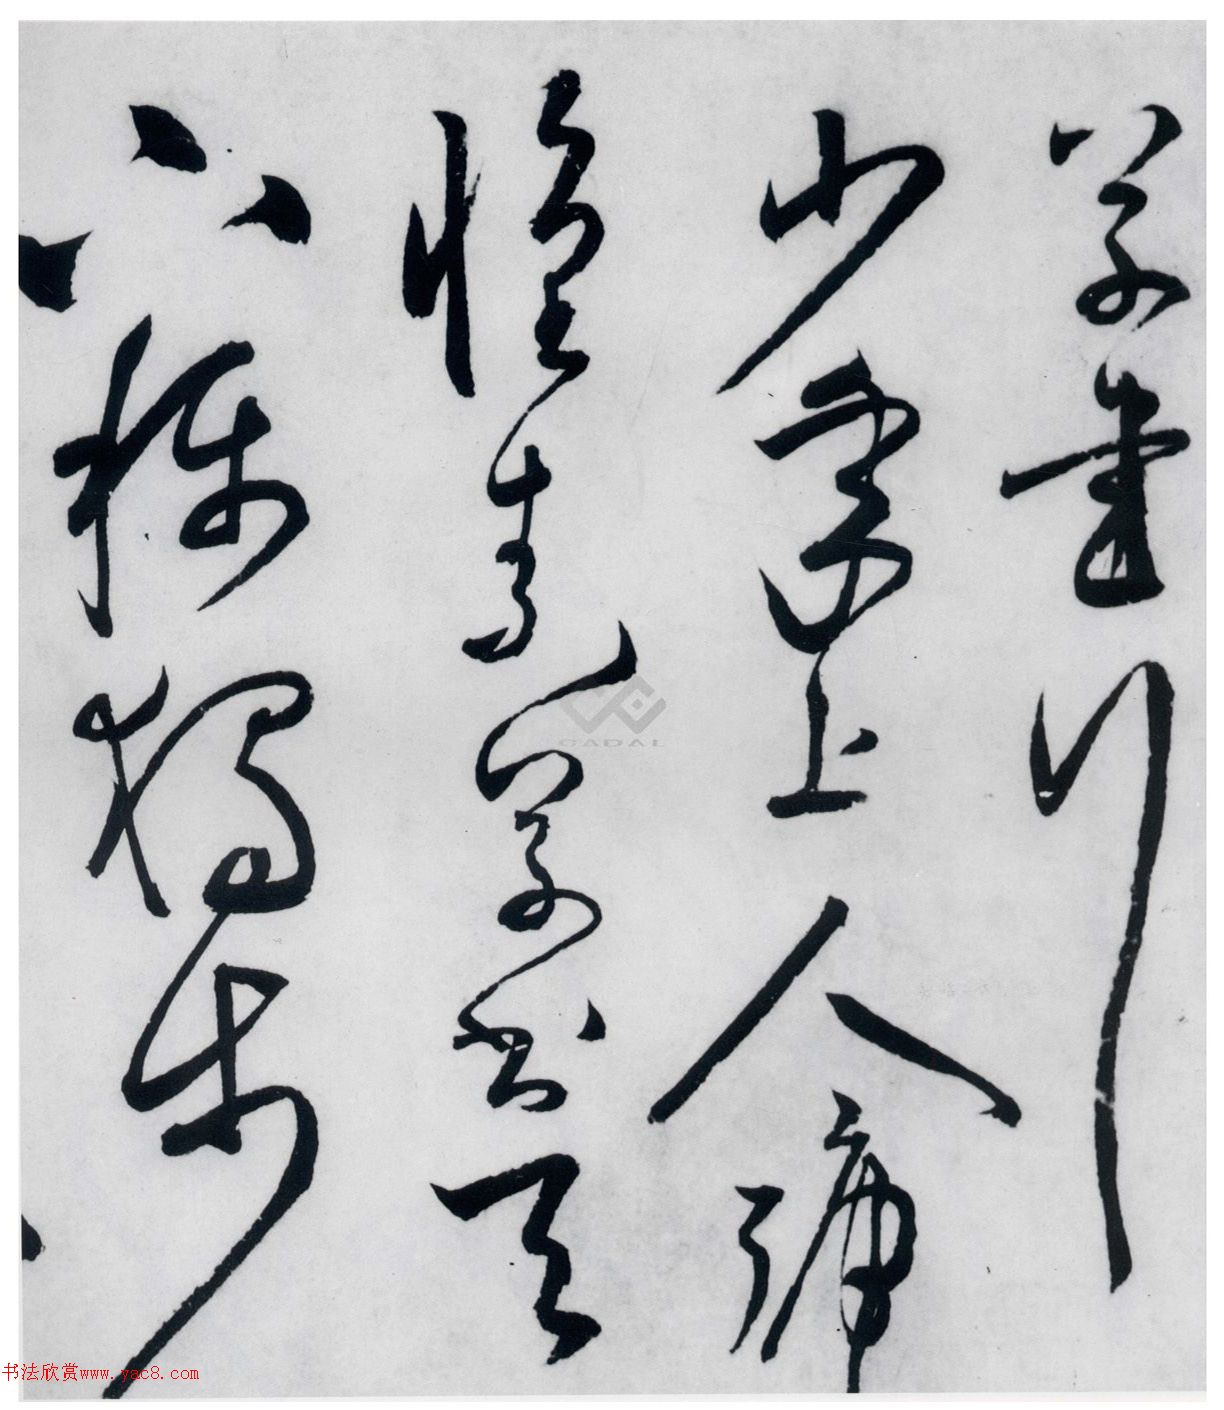 草書行
少年上人號
懷素草書天
下稱獨步
书法欣赏www.yac8.com
CADAL